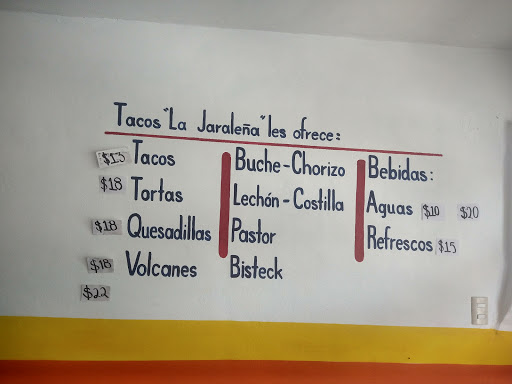 Tacos "La Jaraleña" les ofrece:
$13 Tacos
$18 Tortas
$18 Quesadillas
$18 Volcanes
$22
Buche-Chorizo
Lechón-Costilla
Pastor
Bisteck
Bebidas:
Aguas $10 $20
Refrescos $15